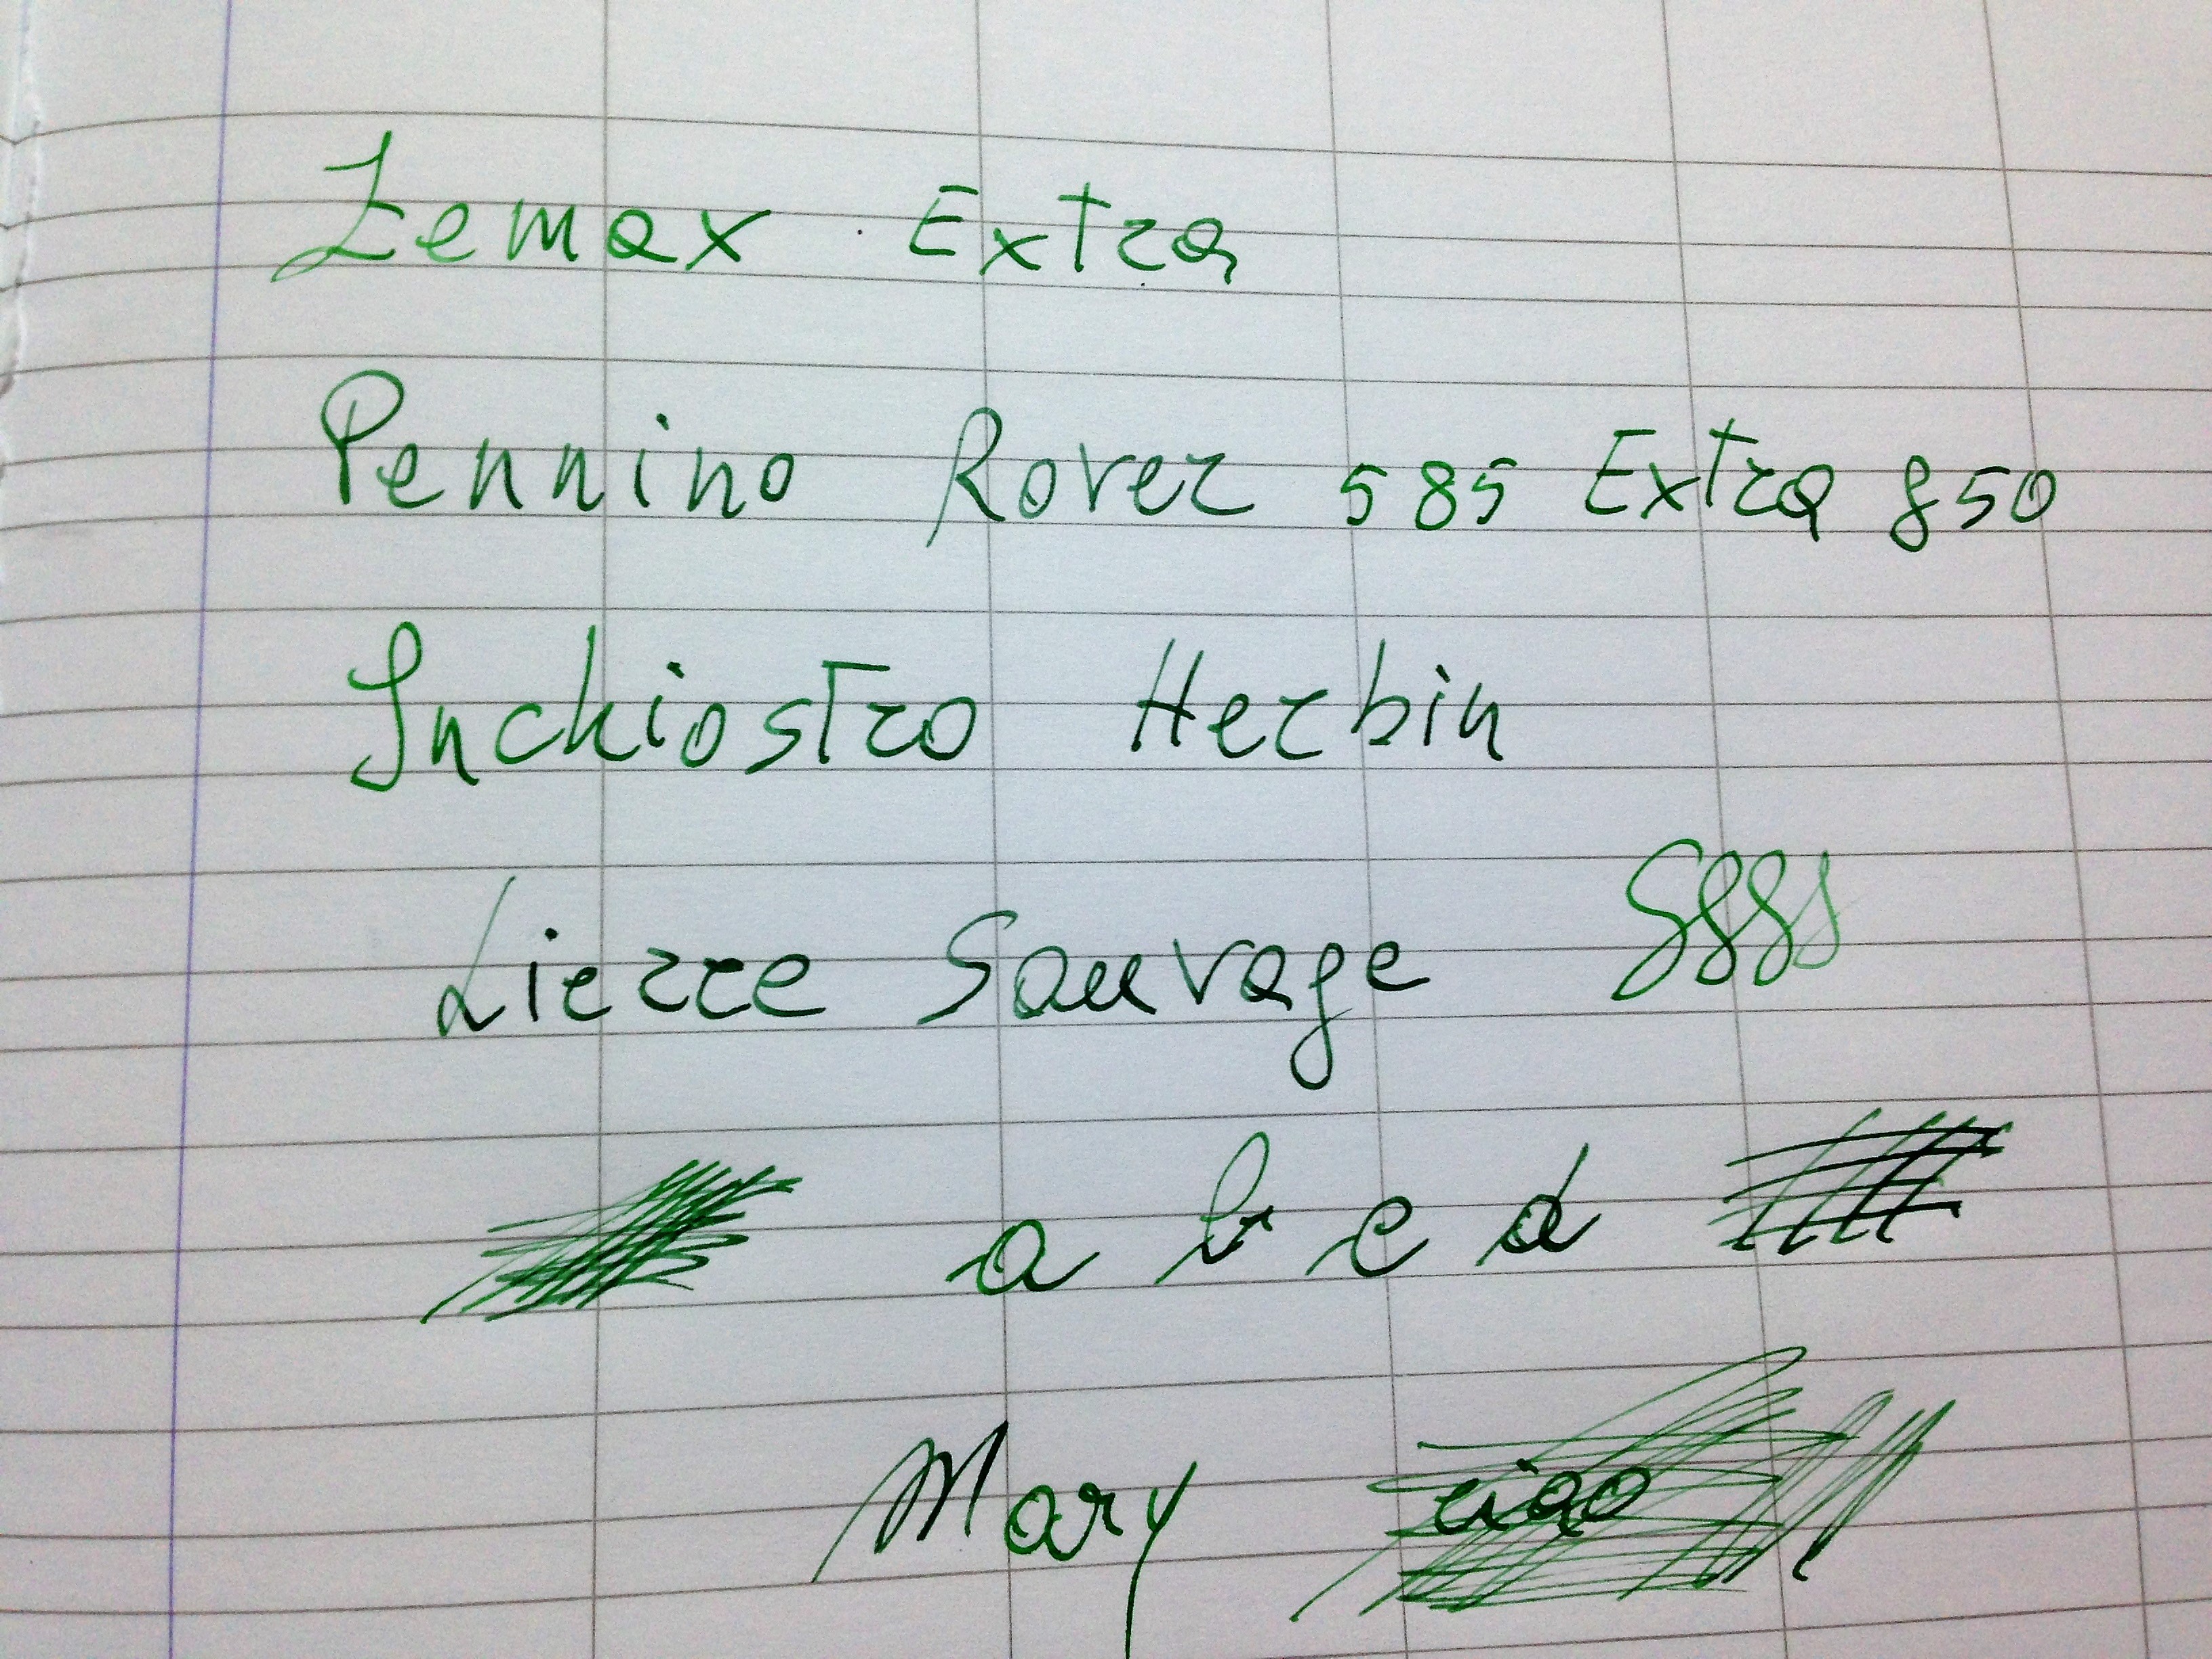 Zemax Extra
Pennino Rover 585 Extra 850
Inchiostro Herbin
Lierre Sauvage
a b c d
Mary ciao